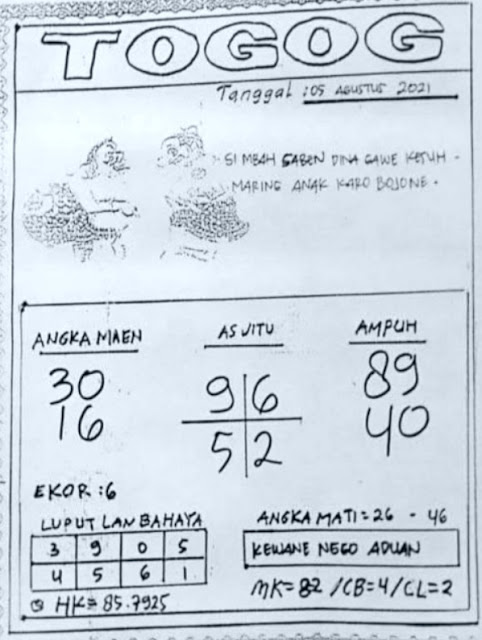 TOGOG
Tanggal : 05 AGUSTUS 2021
SI MBAH SABEN DINA GAWE KETUH -
MARING ANAK KARO BOJONE .
ANGKA MAEN
30
16
AS JITU
9 6
5 2
AMPUH
89
40
EKOR : 6
LUPUT LAN BAHAYA
3 9 0 5
4 5 6 1
HK = 85.7925
ANGKA MATI = 26 - 46
KEWANE NEGO ADUAN
MK = 82 / CB = 4 / CL = 2